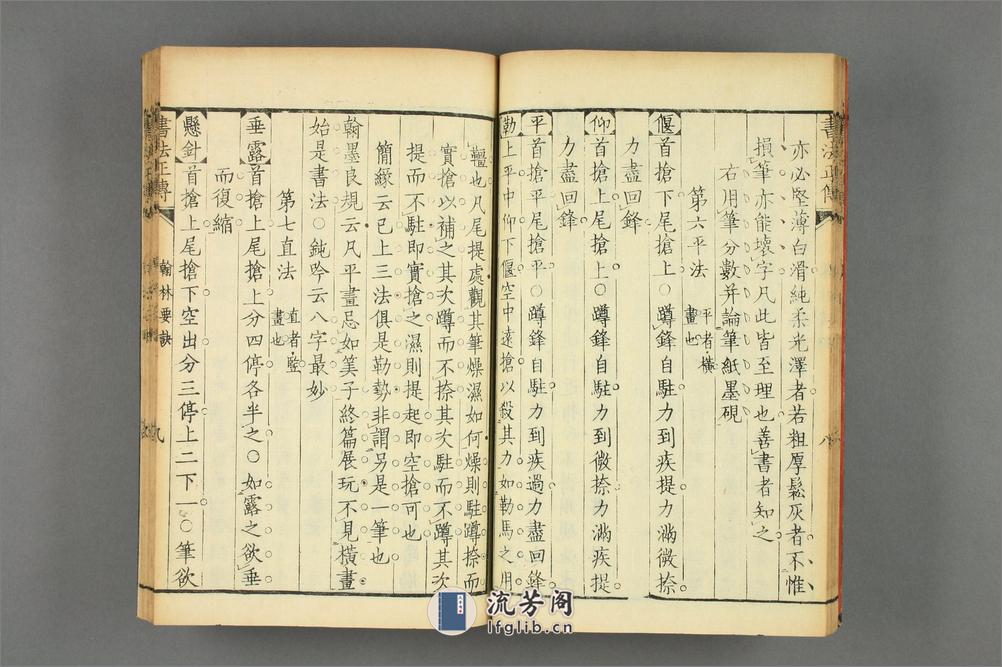 亦必堅薄白滑純柔光澤者若粗厚鬆灰者不惟
損筆亦能壞字凡此皆至理也善書者知之
右用筆分數并論筆紙墨硯
第六平法 平者橫畫也
偃 首搶下尾搶上○蹲鋒自駐力到疾提力滿微捺
力盡回鋒
仰 首搶上尾搶上○蹲鋒自駐力到微捺力滿疾提
力盡回鋒
平 首搶平尾搶平○蹲鋒自駐力到疾過力盡回鋒
勒 上平中仰下偃空中遠搶以殺其力如勒馬之用
韁也凡尾提處觀其筆燥濕如何燥則駐蹲捺而
實搶以補之其次蹲而不捺其次駐而不蹲其次
提而不駐即實搶之濕則提起即空搶可也
簡緣云已上三法俱是勒勢非謂另是一筆也
翰墨良規云凡平畫忌如筭子終篇展玩不見橫畫
始是書法○鈍吟云八字最妙
第七直法 直者豎畫也
垂露 首搶上尾搶上分四停各半之○如露之欲垂
而復縮
懸針 首搶上尾搶下空出分三停上二下一○筆欲
書法正傳
翰林要訣
九
書法正傳
八
流芳阁
lfglib.cn